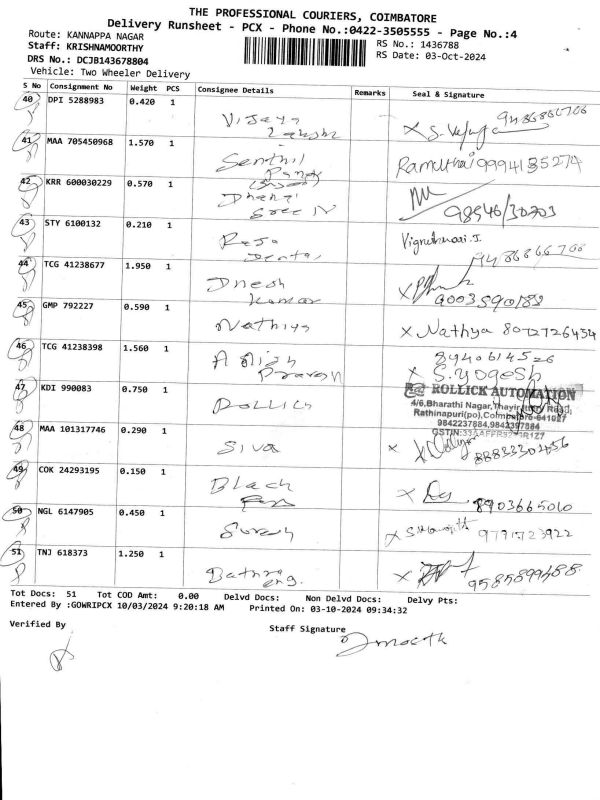 THE PROFESSIONAL COURIERS, COIMBATORE
Delivery Runsheet - PCX - Phone No.:0422-3505555 - Page No.:4
Route: KANNAPPA NAGAR
RS No.: 1436788
Staff: KRISHNAMOORTHY
RS Date: 03-Oct-2024
DRS No.: DCJB143678804
Vehicle: Two Wheeler Delivery
S No Consignment No Weight PCS Consignee Details Remarks Seal & Signature
40 DPI 5288983 0.420 1 Vijaya
41 MAA 705450968 1.570 1 Senthil 9994135274
42 KRR 600030229 0.570 1
43 STY 6100132 0.210 1 Raja
Dental
44 TCG 41238677 1.950 1 Dnesh
Kumar
45 GMP 792227 0.590 1 Nathiya Nathya 8072726454
46 TCG 41238398 1.560 1 8940614526
S.YOGESh
47 KDI 990083 0.750 1 Rollick ROLLICK AUTOMATION
4/6,Bharathi Nagar,
Rathinapuri(po),Coimbatore-641027
9842237884,9842397884
48 MAA 101317746 0.290 1 Siva
49 COK 24293195 0.150 1 Black 8903665010
50 NGL 6147905 0.450 1 Suresh 9791723922
51 TNJ 618373 1.250 1 9585899488
Tot Docs: 51 Tot COD Amt: 0.00 Delvd Docs: Non Delvd Docs: Delvy Pts:
Entered By :GOWRIPCX 10/03/2024 9:20:18 AM Printed On: 03-10-2024 09:34:32
Verified By
Staff Signature